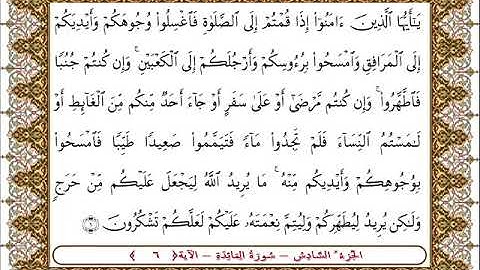 يَـٰٓأَيُّهَا ٱلَّذِينَ ءَامَنُوٓا۟ إِذَا قُمْتُمْ إِلَى ٱلصَّلَوٰةِ فَٱغْسِلُوا۟ وُجُوهَكُمْ وَأَيْدِيَكُمْ
إِلَى ٱلْمَرَافِقِ وَٱمْسَحُوا۟ بِرُءُوسِكُمْ وَأَرْجُلَكُمْ إِلَى ٱلْكَعْبَيْنِ ۚ وَإِن كُنتُمْ جُنُبًا
فَٱطَّهَّرُوا۟ ۚ وَإِن كُنتُم مَّرْضَىٰٓ أَوْ عَلَىٰ سَفَرٍ أَوْ جَآءَ أَحَدٌ مِّنكُم مِّنَ ٱلْغَآئِطِ أَوْ
لَـٰمَسْتُمُ ٱلنِّسَآءَ فَلَمْ تَجِدُوا۟ مَآءً فَتَيَمَّمُوا۟ صَعِيدًا طَيِّبًا فَٱمْسَحُوا۟
بِوُجُوهِكُمْ وَأَيْدِيكُم مِّنْهُ ۚ مَا يُرِيدُ ٱللَّهُ لِيَجْعَلَ عَلَيْكُم مِّنْ حَرَجٍ
وَلَـٰكِن يُرِيدُ لِيُطَهِّرَكُمْ وَلِيُتِمَّ نِعْمَتَهُۥ عَلَيْكُمْ لَعَلَّكُمْ تَشْكُرُونَ ٦
الجزء السادس – سورة المائدة – الآية ﴿ ٦ ﴾